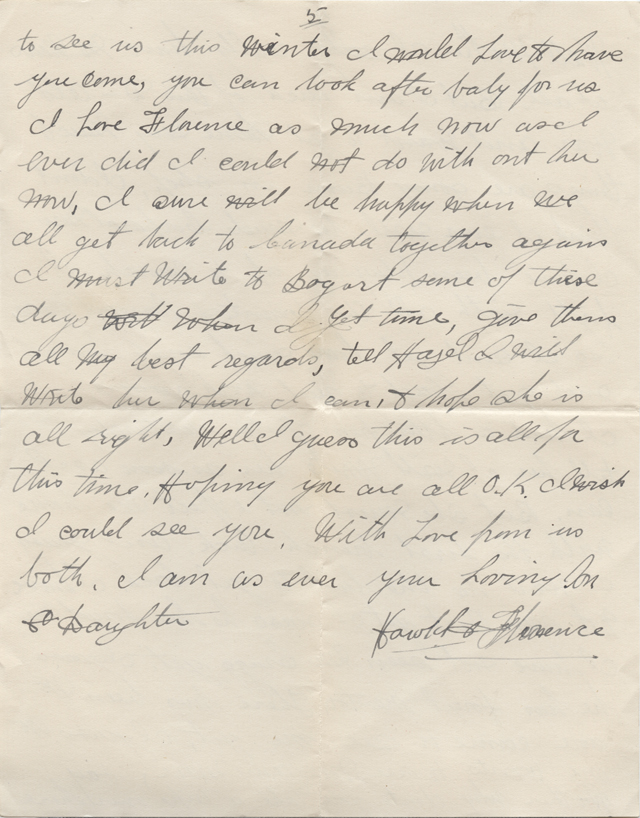 5
to see us this winter I would Love to have
you come, you can look after baby for us
I Love Florence as much now as I
ever did I could not do with out her
now, I sure will be happy when we
all get back to Canada together again
I must Write to Bogart some of these
days will when I get time, give them
all my best regards, tell Hazel I will
Write her when I can, & hope she is
all right, Well I guess this is all for
this time. Hoping you are all O.K. I wish
I could see you. With Love from us
both. I am as ever your Loving Son
& Daughter
& Florence